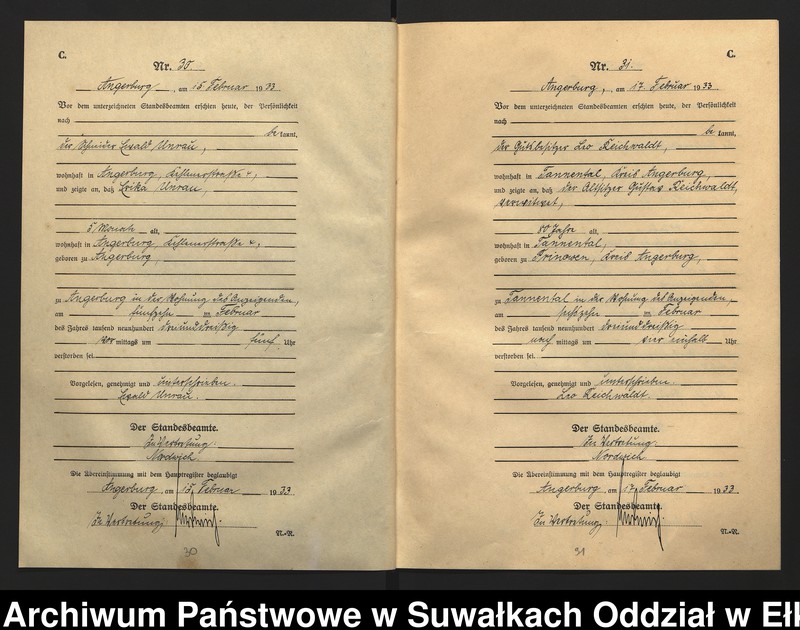 C.
Nr. 30.
Angerburg, am 15 Februar 1933
Vor dem unterzeichneten Standesbeamten erschien heute, der Persönlichkeit
nach
be kannt,
der Schneider Ewald Unrau,
wohnhaft in Angerburg,
und zeigte an, daß Erika Unrau,
5 Monate alt,
wohnhaft in Angerburg,
geboren zu Angerburg,
zu Angerburg in der Wohnung des Anzeigenden,
am fünfzehn ten Februar
des Jahres tausend neunhundert dreiunddreißig
vor mittags um fünf Uhr
verstorben sei.
Vorgelesen, genehmigt und unterschrieben.
Ewald Unrau.
Der Standesbeamte.
In Vertretung.
Nordwich
Die Übereinstimmung mit dem Hauptregister beglaubigt
Angerburg, am 15. Februar 1933
Der Standesbeamte.
In Vertretung:
N.-N.
30
C.
Nr. 31.
Angerburg, am 17. Februar 1933.
Vor dem unterzeichneten Standesbeamten erschien heute, der Persönlichkeit
nach
be kannt,
der Gutsbesitzer Leo Reichwaldt,
wohnhaft in Tannental, Kreis Angerburg,
und zeigte an, daß der Altsitzer Gustav Reichwaldt,
verwitwet,
80 Jahre alt,
wohnhaft in Tannental,
geboren zu Prinowen, Kreis Angerburg,
zu Tannental in der Wohnung des Anzeigenden,
am sechszehn ten Februar
des Jahres tausend neunhundert dreiunddreißig
nach mittags um einhalb Uhr
verstorben sei.
Vorgelesen, genehmigt und unterschrieben.
Leo Reichwaldt.
Der Standesbeamte.
In Vertretung.
Nordwich
Die Übereinstimmung mit dem Hauptregister beglaubigt
Angerburg, am 17. Februar 1933.
Der Standesbeamte.
In Vertretung:
N.-N.
31
Archiwum Państwowe w Suwałkach Oddział w Ełk